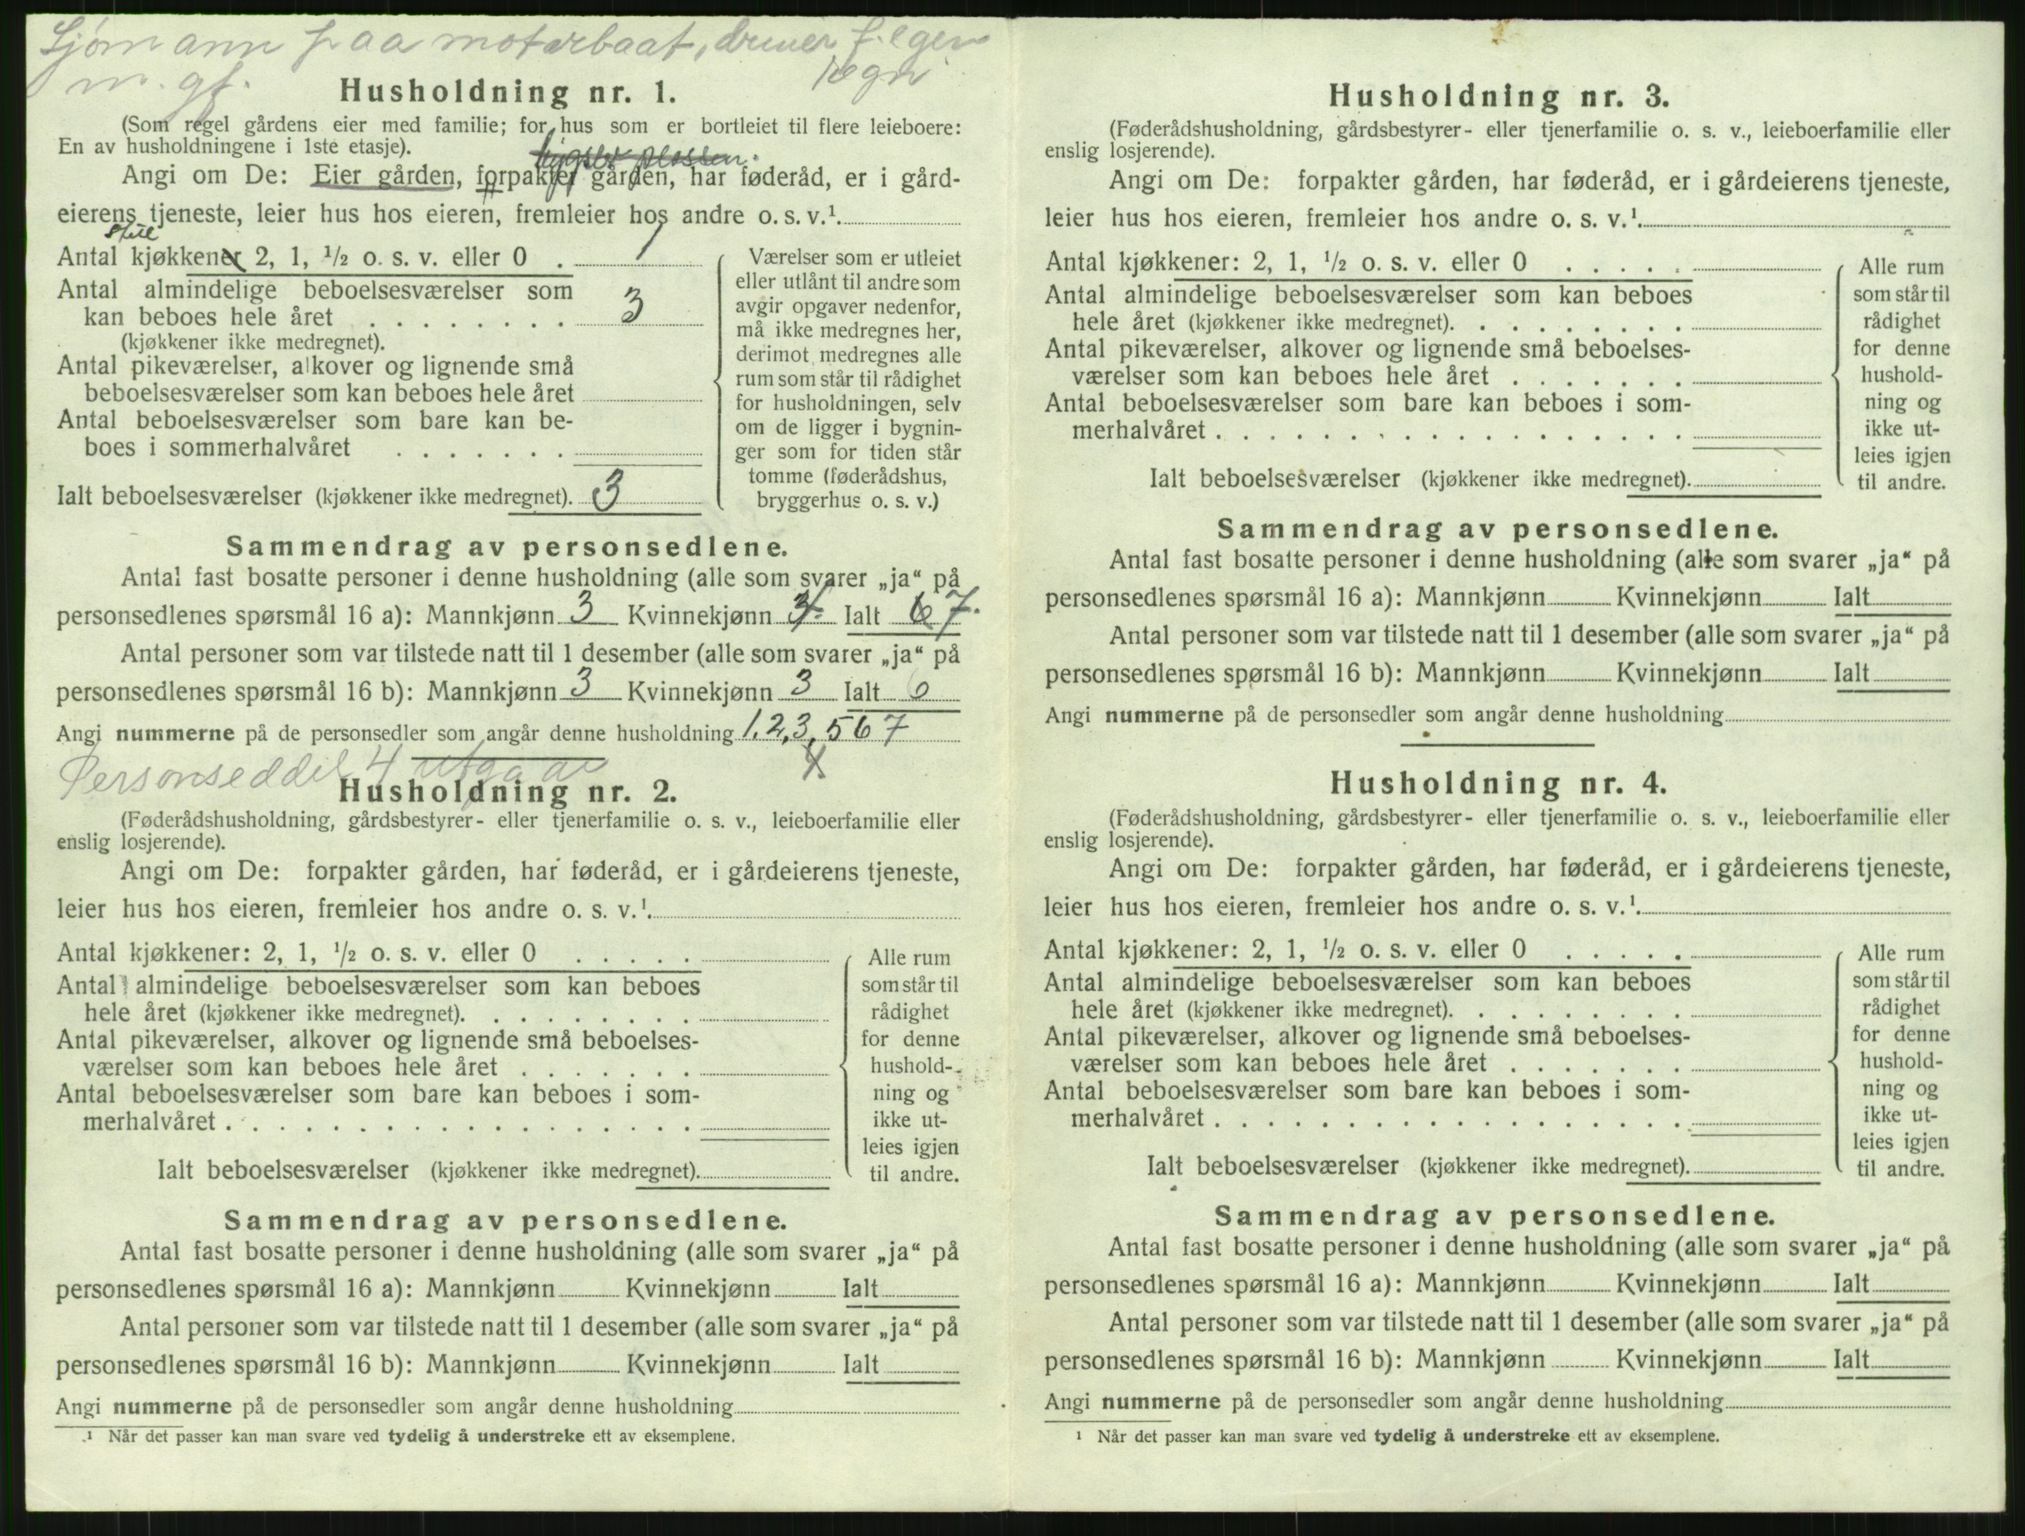 Sjømann paa motorbaat, driver f. egen
m. gf. regn
Husholdning nr. 1.
(Som regel gårdens eier med familie; for hus som er bortleiet til flere leieboere:
En av husholdningene i 1ste etasje).
bygsler plassen.
Angi om De: Eier gården, forpakter gården, har føderåd, er i gård-
eierens tjeneste, leier hus hos eieren, fremleier hos andre o. s. v.¹.
Antal kjøkkener 2, 1, ½ o. s. v. eller 0 . 1
Antal almindelige beboelsesværelser som
kan beboes hele året . . . . . . . . 3
(kjøkkener ikke medregnet).
Antal pikeværelser, alkover og lignende små
beboelsesværelser som kan beboes hele året
Antal beboelsesværelser som bare kan be-
boes i sommerhalvåret . . . . . . .
Ialt beboelsesværelser (kjøkkener ikke medregnet). 3
Værelser som er utleiet
eller utlånt til andre som
avgir opgaver nedenfor,
må ikke medregnes her,
derimot medregnes alle
rum som står til rådighet
for husholdningen, selv
om de ligger i bygnin-
ger som for tiden står
tomme (føderådshus,
bryggerhus o. s. v.)
Sammendrag av personsedlene.
Antal fast bosatte personer i denne husholdning (alle som svarer „ja“ på
personsedlenes spørsmål 16 a): Mannkjønn 3 Kvinnekjønn 3 4. Ialt 6 7.
Antal personer som var tilstede natt til 1 desember (alle som svarer „ja“ på
personsedlenes spørsmål 16 b): Mannkjønn 3 Kvinnekjønn 3 Ialt 6
Angi nummerne på de personsedler som angår denne husholdning 1, 2, 3, 5 6 7
4
Personseddel 4 utgaar
Husholdning nr. 2.
(Føderådshusholdning, gårdsbestyrer- eller tjenerfamilie o. s. v., leieboerfamilie eller
enslig losjerende).
Angi om De: forpakter gården, har føderåd, er i gårdeierens tjeneste,
leier hus hos eieren, fremleier hos andre o. s. v.¹.
Antal kjøkkener: 2, 1, ½ o. s. v. eller 0 . . . . .
Antal almindelige beboelsesværelser som kan beboes
hele året (kjøkkener ikke medregnet). . . . . . . . .
Antal pikeværelser, alkover og lignende små beboelses-
værelser som kan beboes hele året . . . . . . .
Antal beboelsesværelser som bare kan beboes i som-
merhalvåret . . . . . . . . . . . . . . . . . .
Ialt beboelsesværelser (kjøkkener ikke medregnet).
Alle rum
som står til
rådighet
for denne
hushold-
ning og
ikke ut-
leies igjen
til andre.
Sammendrag av personsedlene.
Antal fast bosatte personer i denne husholdning (alle som svarer „ja“ på
personsedlenes spørsmål 16 a): Mannkjønn Kvinnekjønn Ialt
Antal personer som var tilstede natt til 1 desember (alle som svarer „ja“ på
personsedlenes spørsmål 16 b): Mannkjønn Kvinnekjønn Ialt
Angi nummerne på de personsedler som angår denne husholdning
¹ Når det passer kan man svare ved tydelig å understreke ett av eksemplene.
Husholdning nr. 3.
(Føderådshusholdning, gårdsbestyrer- eller tjenerfamilie o. s. v., leieboerfamilie eller
enslig losjerende).
Angi om De: forpakter gården, har føderåd, er i gårdeierens tjeneste,
leier hus hos eieren, fremleier hos andre o. s. v.¹.
Antal kjøkkener: 2, 1, ½ o. s. v. eller 0 . . . . .
Antal almindelige beboelsesværelser som kan beboes
hele året (kjøkkener ikke medregnet). . . . . . . . .
Antal pikeværelser, alkover og lignende små beboelses-
værelser som kan beboes hele året . . . . . . .
Antal beboelsesværelser som bare kan beboes i som-
merhalvåret . . . . . . . . . . . . . . . . . .
Ialt beboelsesværelser (kjøkkener ikke medregnet).
Alle rum
som står til
rådighet
for denne
hushold-
ning og
ikke ut-
leies igjen
til andre.
Sammendrag av personsedlene.
Antal fast bosatte personer i denne husholdning (alle som svarer „ja“ på
personsedlenes spørsmål 16 a): Mannkjønn Kvinnekjønn Ialt
Antal personer som var tilstede natt til 1 desember (alle som svarer „ja“ på
personsedlenes spørsmål 16 b): Mannkjønn Kvinnekjønn Ialt
Angi nummerne på de personsedler som angår denne husholdning
Husholdning nr. 4.
(Føderådshusholdning, gårdsbestyrer- eller tjenerfamilie o. s. v., leieboerfamilie eller
enslig losjerende).
Angi om De: forpakter gården, har føderåd, er i gårdeierens tjeneste,
leier hus hos eieren, fremleier hos andre o. s. v.¹.
Antal kjøkkener: 2, 1, ½ o. s. v. eller 0 . . . . .
Antal almindelige beboelsesværelser som kan beboes
hele året (kjøkkener ikke medregnet). . . . . . . . .
Antal pikeværelser, alkover og lignende små beboelses-
værelser som kan beboes hele året . . . . . . .
Antal beboelsesværelser som bare kan beboes i som-
merhalvåret . . . . . . . . . . . . . . . . . .
Ialt beboelsesværelser (kjøkkener ikke medregnet).
Alle rum
som står til
rådighet
for denne
hushold-
ning og
ikke ut-
leies igjen
til andre.
Sammendrag av personsedlene.
Antal fast bosatte personer i denne husholdning (alle som svarer „ja“ på
personsedlenes spørsmål 16 a): Mannkjønn Kvinnekjønn Ialt
Antal personer som var tilstede natt til 1 desember (alle som svarer „ja“ på
personsedlenes spørsmål 16 b): Mannkjønn Kvinnekjønn Ialt
Angi nummerne på de personsedler som angår denne husholdning
¹ Når det passer kan man svare ved tydelig å understreke ett av eksemplene.